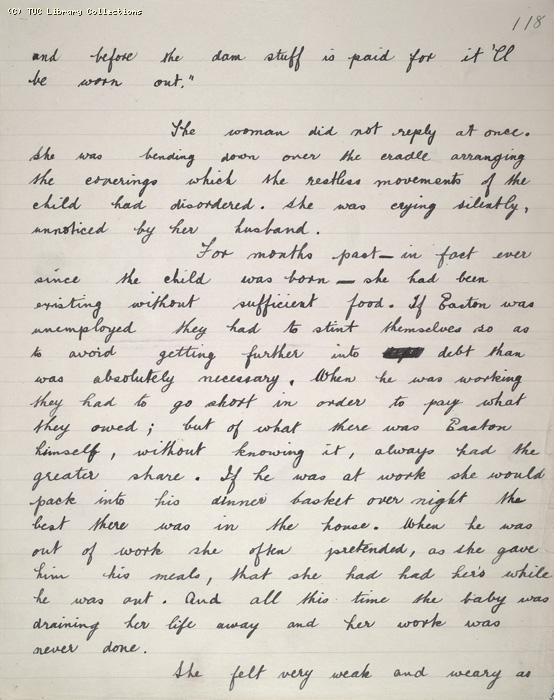 (C) TUC Library Collections
118
and before the dam stuff is paid for it'll
be worn out."
The woman did not reply at once.
She was bending down over the cradle arranging
the coverings which the restless movements of the
child had disordered. She was crying silently,
unnoticed by her husband.
For months past — in fact ever
since the child was born — she had been
existing without sufficient food. If Easton was
unemployed they had to stint themselves so as
to avoid getting further into debt than
was absolutely necessary. When he was working
they had to go short in order to pay what
they owed; but of what there was Easton
himself, without knowing it, always had the
greater share. If he was at work she would
pack into his dinner basket over night the
best there was in the house. When he was
out of work she often pretended, as she gave
him his meals, that she had had her's while
he was out. And all this time the baby was
draining her life away and her work was
never done.
She felt very weak and weary as